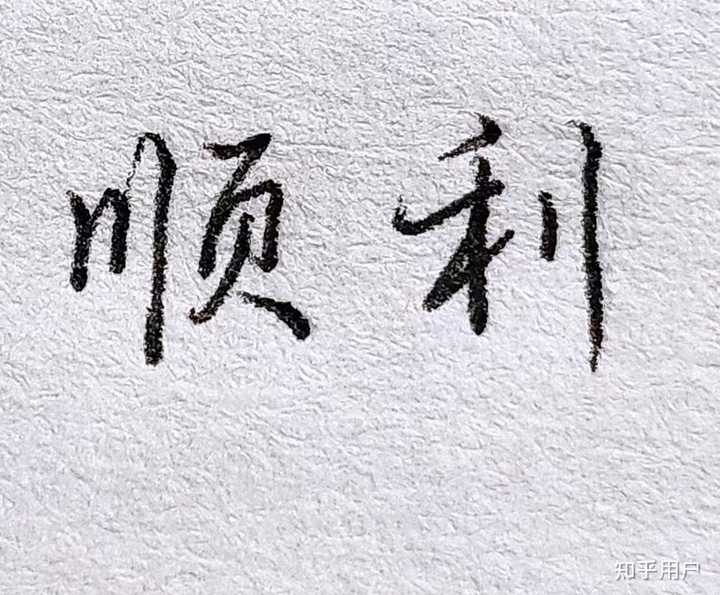 顺利
知乎用户